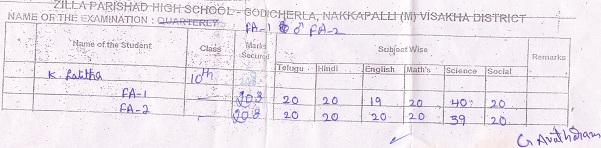 ZILLA PARISHAD HIGH SCHOOL - GODICHERLA, NAKKAPALLI (M) VISAKHA DISTRICT
NAME OF THE EXAMINATION : QUARTERLY FA-1 & FA-2
Name of the Student Class Marks Secured Subject Wise Remarks
Telugu Hindi English Math's Science Social
K. Lalitha 10th
FA-1 203 20 20 19 20 40 20
FA-2 208 20 20 20 20 39 20